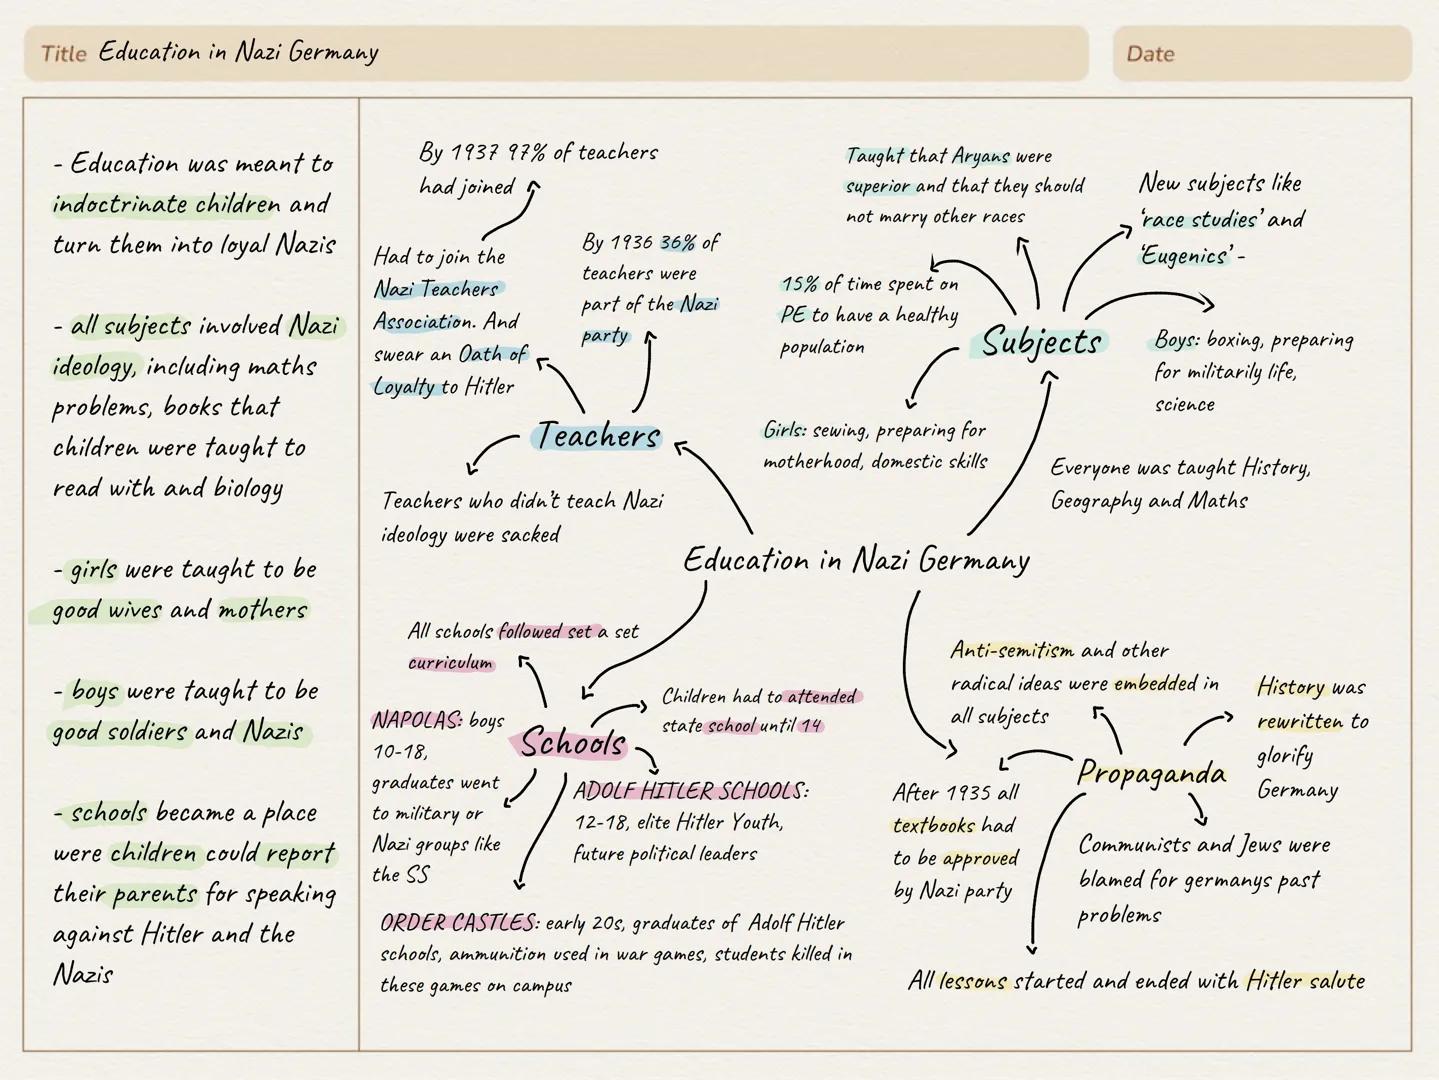 Title Education in Nazi Germany
Date
- Education was meant to
indoctrinate children and
turn them into loyal Nazis
- all subjects involved Nazi
ideology, including maths
problems, books that
children were taught to
read with and biology
- girls were taught to be
good wives and mothers
- boys were taught to be
good soldiers and Nazis
- schools became a place
were children could report
their parents for speaking
against Hitler and the
Nazis
By 1937 97% of teachers
had joined
Had to join the
Nazi Teachers
Association. And
swear an Oath of
Loyalty to Hitler
By 1936 36% of
teachers were
part of the Nazi
party
Teachers
Teachers who didn't teach Nazi
ideology were sacked
Taught that Aryans were
superior and that they should
not marry other races
New subjects like
'race studies' and
'Eugenics' -
15% of time spent on
PE to have a healthy
population
Subjects
Boys: boxing, preparing
for militarily life,
science
Girls: sewing, preparing for
motherhood, domestic skills
Everyone was taught History,
Geography and Maths
Education in Nazi Germany
All schools followed set a set
curriculum
Children had to attended
state school until 14
NAPOLAS: boys
10-18,
graduates went
to military or
Nazi groups like
the SS
Schools
ADOLF HITLER SCHOOLS:
12-18, elite Hitler Youth,
future political leaders
ORDER CASTLES: early 20s, graduates of Adolf Hitler
schools, ammunition used in war games, students killed in
these games on campus
Anti-semitism and other
radical ideas were embedded in
all subjects
History was
rewritten to
glorify
Germany
Propaganda
After 1935 all
textbooks had
to be approved
by Nazi party
Communists and Jews were
blamed for germanys past
problems
All lessons started and ended with Hitler salute